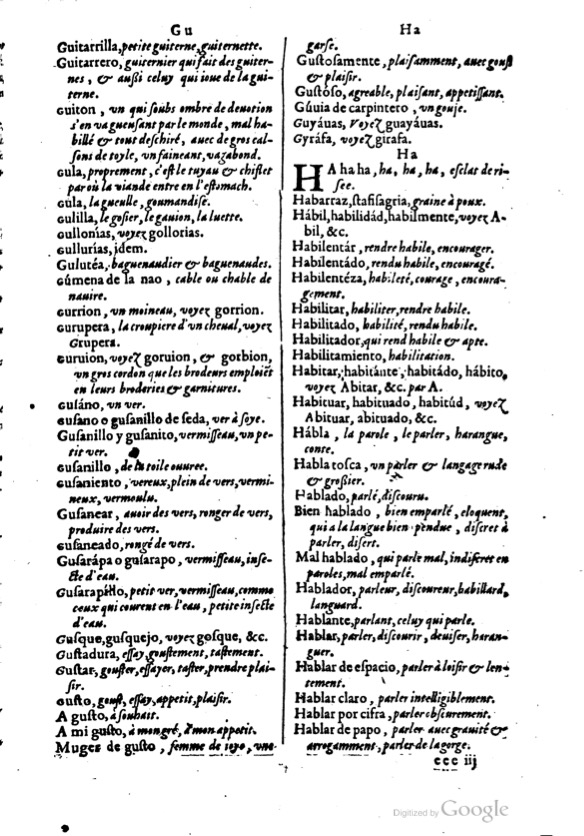 Gu
Guitarrilla, petite guiterne, guiternette.
Guitarrero, guiternier qui fait des guiter-
nes, & außi celuy qui ioue de la gui-
terne.
Guiton, vn qui soubs ombre de deuotion
s'en va gueusant par le monde, mal ha-
billé & tout deschiré, auec de gros cal-
sons de toyle, vn faineant, vagabond.
Gula, proprement, c'est le tuyau & chiflet
par où la viande entre en l'estomach.
Gula, la gueulle, gourmandise.
Gulilla, le gosier, le gauion, la luette.
Gullonías, voyez gollorias.
Gullurías, idem.
Gulutéa, baguenaudier & baguenaudes.
Gúmena de la nao, cable ou chable de
nauire.
Gurrion, vn moineau, voyez gorrion.
Gurupera, la croupiere d'vn cheual, voyez
Grupera.
Guruion, voyez goruion, & gorbion,
vn gros cordon que les brodeurs emploiẽt
en leurs broderies & garnitures.
Gusáno, vn ver.
Gusano o gusanillo de seda, ver à soye.
Gusanillo y gusanito, vermisseau, vn pe-
tit ver.
Gusanillo, de la toile ouuree.
Gusaniento, vereux, plein de vers, vermi-
neux, vermoulu.
Gusanear, auoir des vers, ronger de vers,
produire des vers.
Gusaneado, rongé de vers.
Gusarápa o gusarapo, vermisseau, inse-
cte d'eau.
Gusarapillo, petit ver, vermisseau, comme
ceux qui courent en l'eau, petite insecte
d'eau.
Gusque, gusquejo, voyez gosque, &c.
Gustadura, essay, goustement, tastement.
Gustar, gouster, essayer, taster, prendre plai-
sir.
Gusto, goust, essay, appetit, plaisir.
A gusto, à souhait.
A mi gusto, à mon gré, à mon appetit.
Muges de gusto, femme de ioye, vne
Ha
garse.
Gustosamente, plaisamment, auec goust
& plaisir.
Gustóso, agreable, plaisant, appetissant.
Gúuia de carpintero, vn gouje.
Guyáuas, Voyez guayáuas.
Gyráfa, voyez girafa.
Ha
HA ha ha, ha, ha, ha, esclat de ri-
see.
Habarraz, stafisagria, graine à poux.
Hábil, habilidád, habilmente, voyez A-
bil, &c.
Habilentár, rendre habile, encourager.
Habilentádo, rendu habile, encouragé.
Habilentéza, habileté, courage, encoura-
gement.
Habilitar, habiliter, rendre habile.
Habilitado, habilité, rendu habile.
Habilitador, qui rend habile & apte.
Habilitamiento, habilitation.
Habitar, habitánte, habitádo, hábito,
voyez Abitar, &c. par A.
Habituar, habituado, habitúd, voyez
Abituar, abituado, &c.
Hábla, la parole, le parler, harangue,
conte.
Habla tosca, vn parler & langage rude
& grossier.
Hablado, parlé, discouru.
Bien hablado, bien emparlé, eloquent,
qui a la langue bien pendue, discret à
parler, disert.
Mal hablado, qui parle mal, indiscret en
paroles, mal emparlé.
Hablador, parleur, discoureur, babillard,
languard.
Hablante, parlant, celuy qui parle.
Hablar, parler, discourir, deuiser, haran-
guer.
Hablar de espacio, parler à loisir & len-
tement.
Hablar claro, parler intelligiblement.
Hablar por cifra, parler obscurement.
Hablar de papo, parler auec grauité &
arrogamment, parler de la gorge.
ccc iij
Digitized by Google